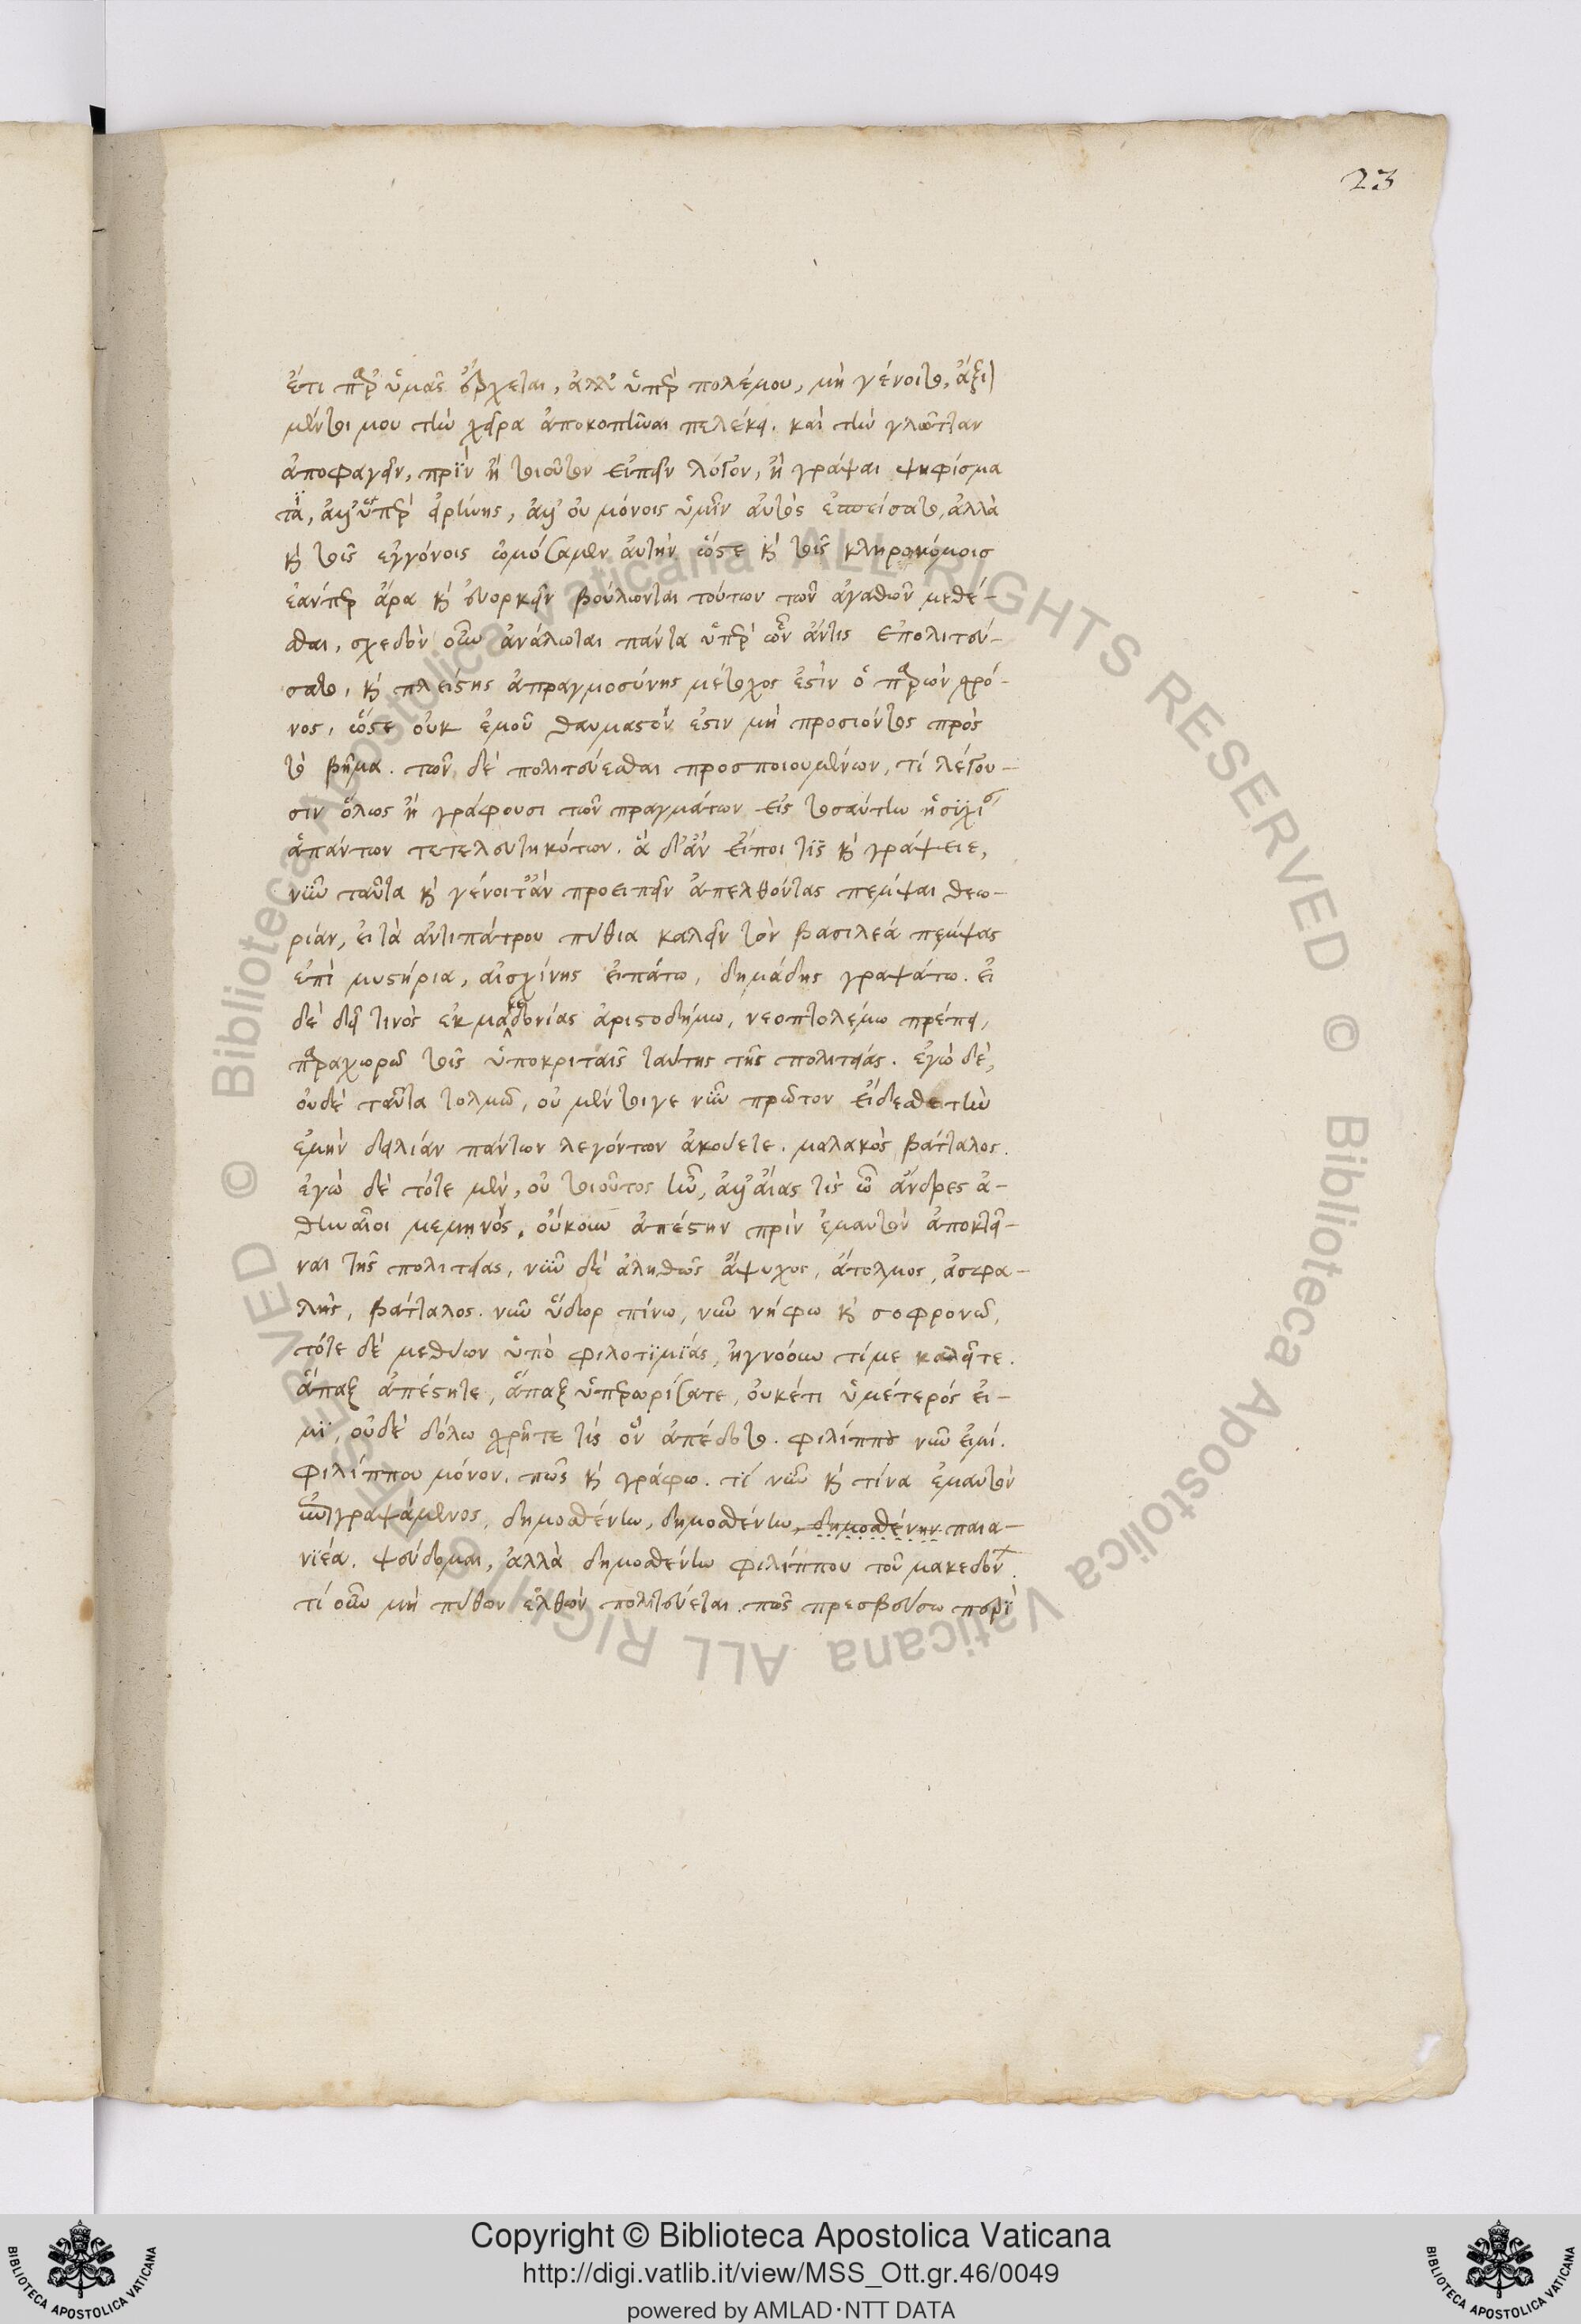 23
ἔτι παρ' ὑμᾶς ἔρχεται, ἀλλ' ὑπὲρ πολέμου, μὴ γένοιτο, ἀξι
μέντοι μου τὴν χεῖρα ἀποκοπῆναι πελέκει. καὶ τὴν γλῶτταν
ἀποφαγεῖν, πρὶν ἢ τοιοῦτον εἰπεῖν λόγον, ἢ γράψαι ψηφίσμα
ὑπὲρ εἰρήνης, οὐ μόνοις ὑμῖν αὐτὸς ἐπεσείσατο, ἀλλὰ
καὶ τοῖς ἐγγόνοις ὠμόσαμεν αὐτὴν ὥστε καὶ τοῖς κληρονόμοις
ἐάνπερ ἄρα καὶ εὐορκεῖν βούλωνται τούτων τῶν ἀγαθῶν μεθέ-
σθαι, σχεδὸν οὖν ἀνάλωται πάντα ὑπὲρ ὧν ἄντις ἐπολιτεύ-
σατο, καὶ πλείστης ἀπραγμοσύνης μέτοχος ἐστὶν ὁ παρὼν χρό-
νος, ὥστε οὐκ ἐμοῦ θαυμαστόν ἐστιν μὴ προσιόντος πρὸς
τὸ βῆμα. τῶν δὲ πολιτεύεσθαι προσποιουμένων, τί λέγου-
σιν ὅλως ἢ γράφουσι τῶν πραγμάτων εἰς τοσαύτην ἡσυχί
ἁπάντων τετελευτηκότων. ἃ δ' ἂν εἴποι τὶς καὶ γράψειε,
νῦν ταῦτα καὶ γένοιτ' ἂν προειπεῖν ἀπελθόντας πέμψαι θεω-
ρίαν, εἰ τὰ ἀντιπάτρου πύθια καλεῖν τὸν βασιλέα πέμψας
ἐπὶ μυστήρια, αἰσχίνης εἰπάτω, δημάδης γραψάτω. εἰ
δὲ δεῖ τινὸς ἐκ μακεδονίας ἀριστοδήμω, νεοπτολέμω πρέπει,
παραχωρῶ τοῖς ὑποκριταῖς ταύτης τῆς πολιτείας. ἐγὼ δὲ,
οὐδὲ ταῦτα τολμῶ, οὐ μέντοιγε νῦν πρῶτον εἴδεσθε τὴν
ἐμὴν δειλίαν πάντων λεγόντων ἀκούετε. μαλακὸς βάτταλος.
ἐγὼ δὲ τότε μὲν, οὐ τοιοῦτος ἦν, ἀλλ' αἴας τὶς ὦ ἄνδρες ἀ-
θηναῖοι μεμηνός. οὔκουν ἀπέστην πρὶν ἐμαυτὸν ἀποκτεῖ-
ναι τῆς πολιτείας, νῦν δὲ ἀληθῶς ἄψυχος, ἄτολμος, ἀσφα-
λὴς, βάτταλος. νῦν ὕδωρ πίνω, νῦν νήφω καὶ σοφρονῶ,
τότε δὲ μεθύων ὑπὸ φιλοτιμίας, ἠγνόουν τί με καλεῖτε.
ἅπαξ ἀπέστητε, ἅπαξ ὑπερωρίσατε, οὐκέτι ὑμέτερός εἰ-
μι, οὐδὲ δόλω χρῆτε τίς οὖν ἀπέδοτο. φιλίππου νῦν εἰμί.
φιλίππου μόνον. πῶς καὶ γράφω. τί νῦν καὶ τίνα ἐμαυτὸν
ὑπογραψάμενος, δημοσθένην, δημοσθένην, δημοσθένην παια-
νιέα. ψεύδομαι, ἀλλὰ δημοσθένην φιλίππου τοῦ μακεδον
τί οὖν μὴ πύθων ἐλθὼν πολιτεύεται. πῶς πρεσβεύσω περὶ
Copyright © Biblioteca Apostolica Vaticana
http://digi.vatlib.it/view/MSS_Ott.gr.46/0049
powered by AMLAD·NTT DATA
BIBLIOTECA APOSTOLICA VATICANA
BIBLIOTECA APOSTOLICA VATICANA
© Biblioteca Apostolica Vaticana ALL RIGHTS RESERVED © Biblioteca Apostolica Vaticana ALL RIGHTS RESERVED